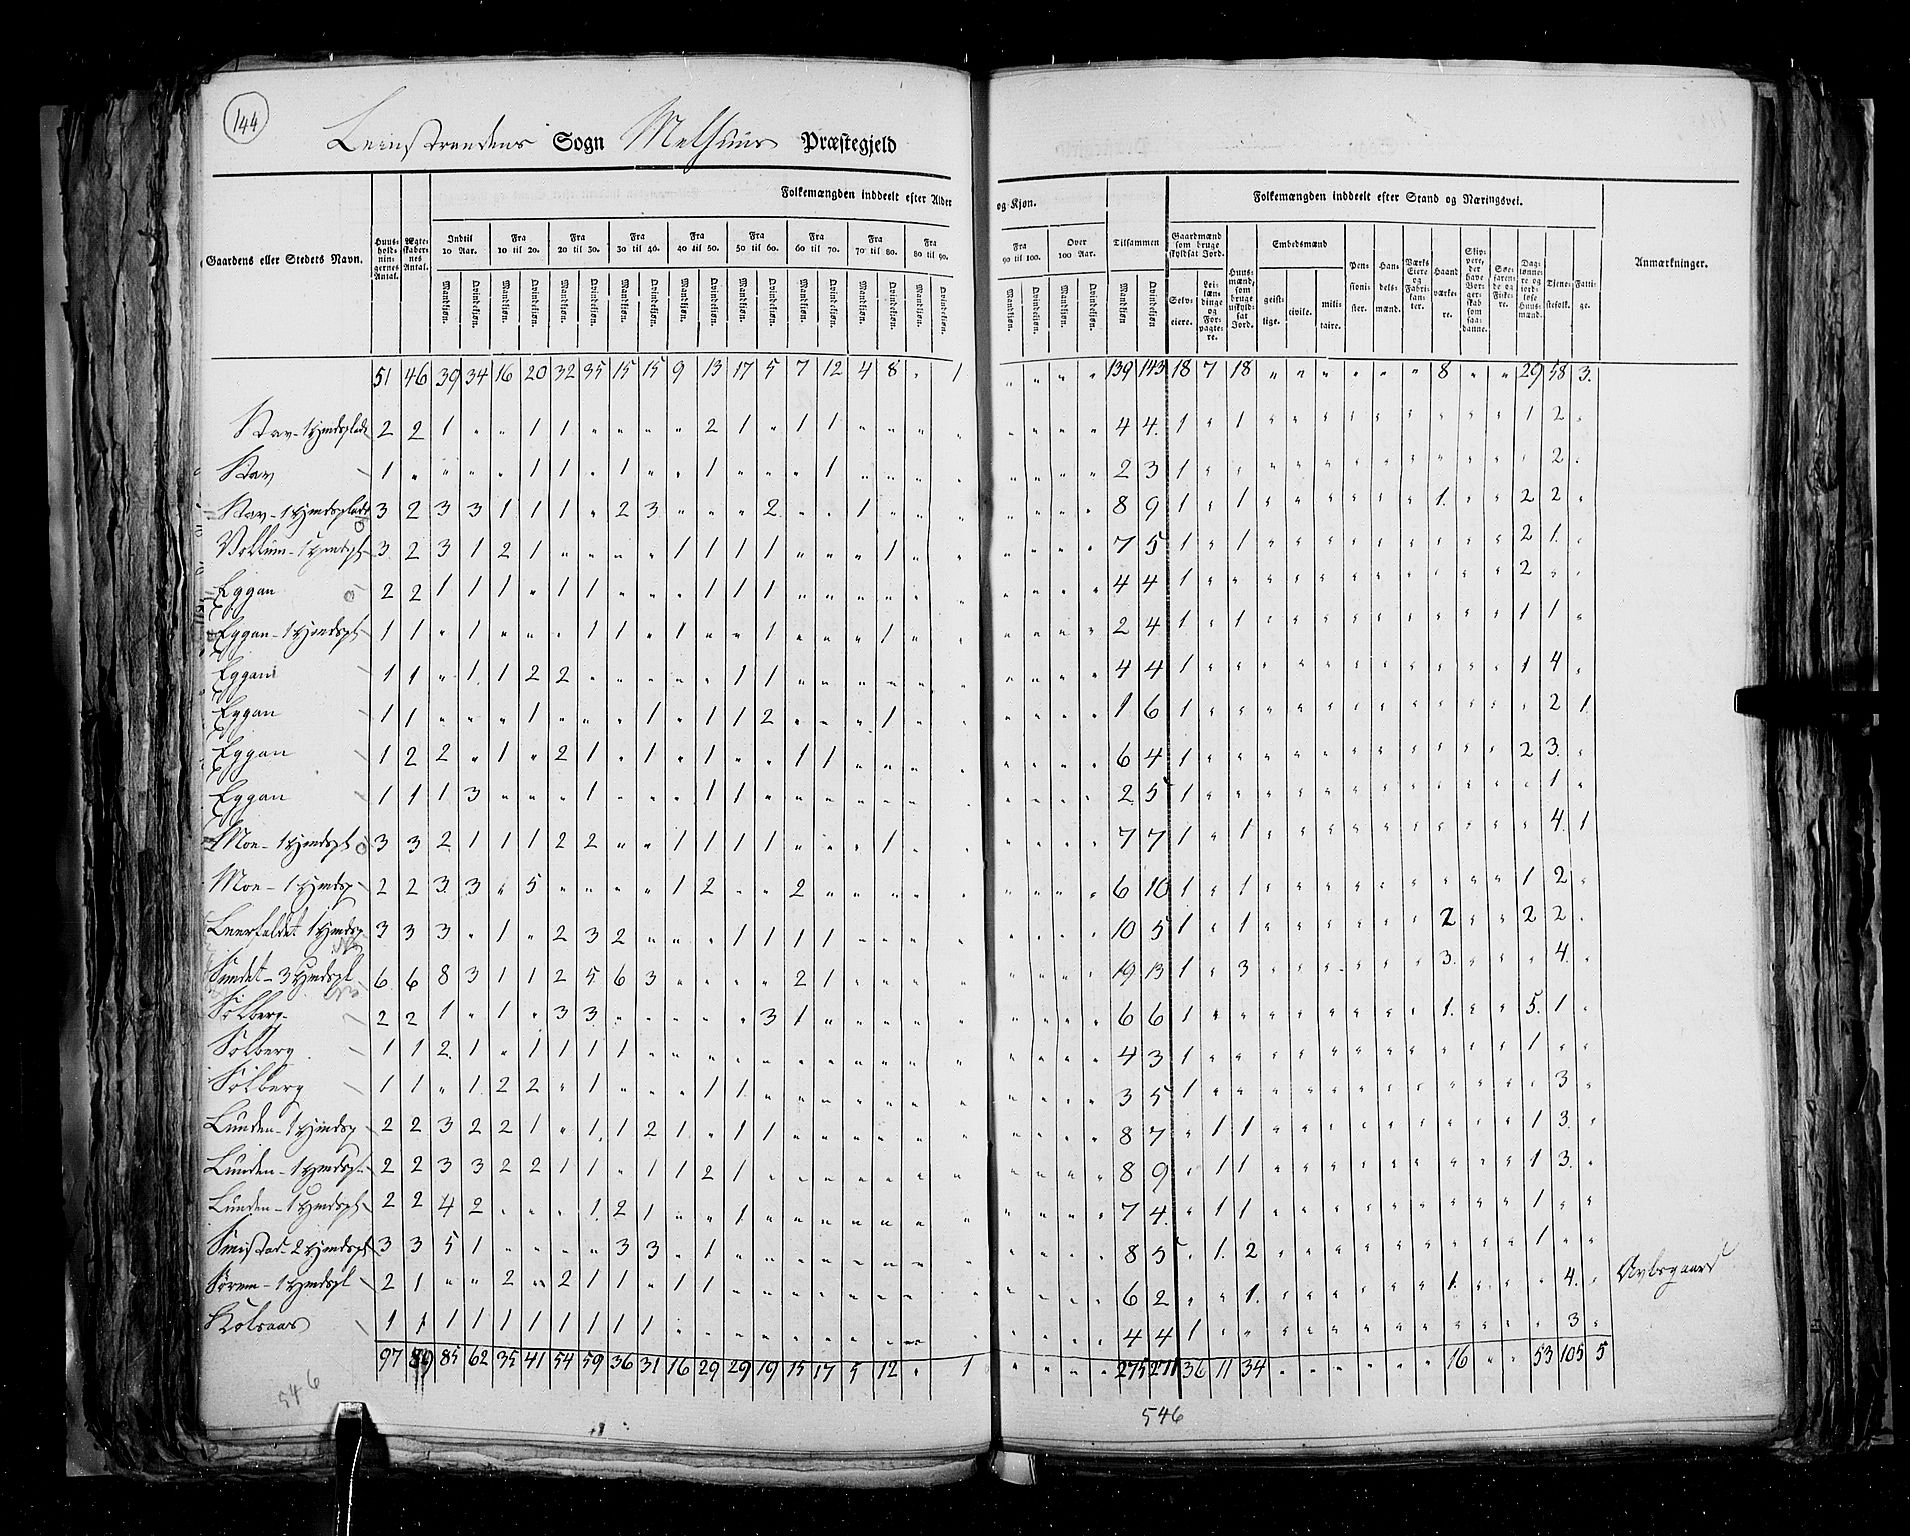 144
Leinstrandens Sogn Melhuus Præstegjeld
Folkemængden inddeelt efter Alder og Kjøn. Folkemængden inddeelt efter Stand og Næringsvei.
Gaardens eller Stedets Navn. Huusholdningernes Antal. Ægteskabernes Antal. Indtil 10 Aar. Fra 10 til 20. Fra 20 til 30. Fra 30 til 40. Fra 40 til 50. Fra 50 til 60. Fra 60 til 70. Fra 70 til 80. Fra 80 til 90. Fra 90 til 100. Over 100 Aar. Tilsammen Gaardmænd som bruge skyldsat Jord. Huusmænd, som bruge uskyldsat Jord. Embedsmænd Pensionister. Handelsmænd. Værks Eiere og Fabrikanter. Haandværkere. Skippere, der have Borgerskab som saadanne. Søefarende og Fiskere. Daglønnere og jordløse Huusmænd. Tjenestefolk. Fattige. Anmærkninger.
Mandkjøn. Qvindekjøn. Mandkjøn. Qvindekjøn. Mandkjøn. Qvindekjøn. Mandkjøn. Qvindekjøn. Mandkjøn. Qvindekjøn. Mandkjøn. Qvindekjøn. Mandkjøn. Qvindekjøn. Mandkjøn. Qvindekjøn. Mandkjøn. Qvindekjøn. Mandkjøn. Qvindekjøn. Mandkjøn. Qvindekjøn. Mandkjøn Qvindekjøn Selveiere. Leilændinge og Forpagtere. geistlige. civile. militaire.
51 46 39 34 16 20 32 35 15 15 9 13 17 5 7 12 4 8 " 1 " " " " 139 143 18 7 18 " " " " " " 8 " " 29 58 3.
Stav - 1 Hmdsplads 2 2 1 " " 1 1 " " " " 2 1 " 1 1 " " " " " " " " 4 4. 1 " 1 " " " " " " " " " 1 2 "
Stav 1 " " " " 1 1 " 1 " " 1 " " " 1 " " " " " " " " 2 3 1 " " " " " " " " " " " " 2. "
Stav - 1 Hmdsplads 3 2 3 3 1 1 1 " 2 3 " " " 2 " " 1 " " " " " " " 8 9 1 " 1 " " " " " " 1. " " 2 2 "
Vollum - 1 Hmdspl 3. 2 3 1 2 1 " " " " 1 1 1 1 " " " 1 " " " " " " 7 5 1 " 1 " " " " " " " " " 2 1. "
Eggan 2 2 1 1 1 " 1 1 " " " 1 1 1 " " " " " " " " " " 4 4 1 " " " " " " " " " " " 2 " "
Eggan - 1 Hmdspl 1 1 " 1 " " " 1 1 " 1 " " 1 " " " 1 " " " " " " 2 4 1 " 1 " " " " " " " " " 1 1 "
Eggan 1 1 " 1. 1 2 2 " " " " " 1 1 " " " " " " " " " " 4 4 1 " " " " " " " " " " " 1 4 "
Eggan 1 1 " " " 1 " " " 1 " 1 1 2 " " " 1 " " " " " " 1 6 1 " " " " " " " " " " " " 2 1.
Eggan 1 2 2 " 1 " 2 1 " 1 " 1 " " 1 1 " " " " " " " " 6 4 1 " " " " " " " " " " " 2 3. "
Eggan 1 1 1 3 " " " 1 " " " 1 1 " " " " " " " " " " " 2 5 1 " " " " " " " " " " " " 1 "
Moe - 1 Hmdspl 3 3 2 1 1 1 2 2 " " 1 1 1 1 " " " 1 " " " " " " 7 7 1 " 1 " " " " " " " " " " 4. 1
Moe - 1 Hmdsp 2 2 3. 3 " 5 " " " " 1 2 " " 2 " " " " " " " " " 6 10 1 " 1 " " " " " " " " " 1 2 "
Leerfaldet 1 Hmdsp 3 3 3 " 1 " 2 3 2 " " " 1 1 1 1 " " " " " " " " 10 5 1 " 1 " " " " " " 2 " " 2 2 "
Sundet - 3 Hmdspl 6 6 8 3 1 1 2 5 6 3 " " " " 2 1 " " " " " " " " 19 13 1 " 3 " " " " " " 3. " " " 4. "
Solberg 2 2 1 " 1 " 3 3 " " " " " 3 1 " " " " " " " " " 6 6 1 " " " " " " " " 1. " " 5. 1 "
Solberg 1 1 2 1 " 1 1 1 1 " " " " " " " " " " " " " " " 4 3 1 " " " " " " " " " " " 1 " "
Solberg 1 1 " 1. 2 2 " 1 " " " 1 1 " " " " " " " " " " " 3 5 1 " " " " " " " " " " " " 3 "
Lunden - 1 Hmdsp 2 2 3 2 2 1 " 1. 1 2 1 " 1 1 " " " " " " " " " " 8 7 " 1 1 " " " " " " " " " 1 3. "
Lunden - 1 Hmdspl 2 2 3 3 2 2 1 1 " 1 1 2 1 " " " " " " " " " " " 8 9 " 1 1 " " " " " " " " " 1 3. "
Lunden - 1 Hmdspl 2 2 4 2 " " " 1. 2 1 " " 1 " " " " " " " " " " " 7 4. " 1 1 " " " " " " " " " 1 " "
Smistad - 2 Hmdspl 3 3 5 1 " " " " 3 3 " 1 " " " " " " " " " " " " 8 5 " 1. 2 " " " " " " " " " 1 " "
Sørem - 1 Hmdspl 2 1 " " 2 " 2 1 1 " 1 1 " " " " " " " " " " " " 6 2 " " 1. " " " " " " 1. " " " 4. "
Kolsaas 1 1 1 1 1 1 1 1 1 1 " " " " " " " " " " " " " " 4 4 1 " " " " " " " " " " " " 3 "
97 89 85 62 35 41 54 59 36 31 16 29 29 19 15 17 5 12 " 1 " " " " 275 271 36 11 34 " " " " " " 16 " " 53 105 5
546
546